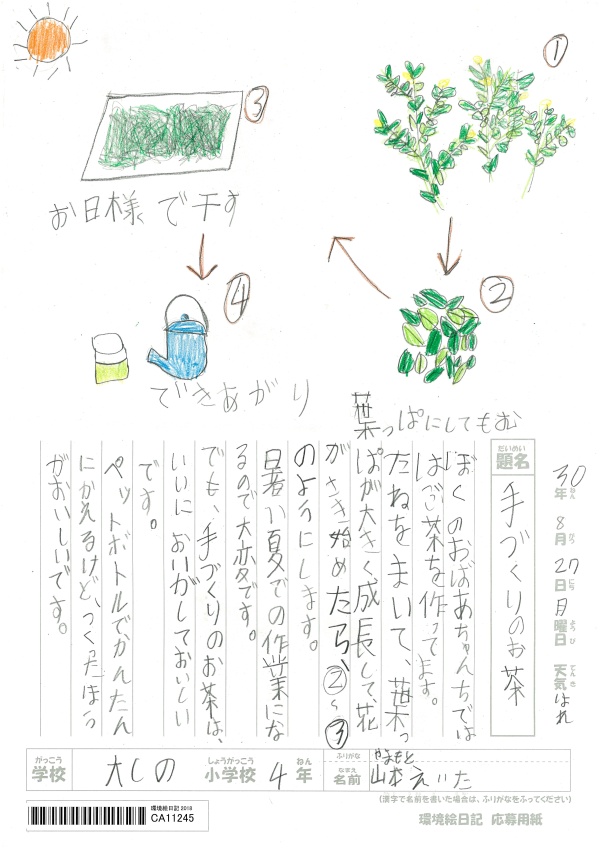 ①
③
お日様で干す
②
葉っぱにしてもむ
④
できあがり
30年 8月 27日 月曜日 天気 はれ
ねん がつ にち ようび てんき
だいめい
題名 手づくりのお茶
ぼくのおばあちゃんちでは
はこ茶を作ってます。
たねをまいて、葉っ
ぱが大きく成長して花
がさき始めたら、②〜③
のようにします。
暑い夏での作業にな
るので大変です。
でも、手づくりのお茶は、
いいにおいがしておいしい
です。
ペットボトルでかんたん
にかえるけど、つくったほう
がおいしいです。
がっこう しょうがっこう ねん ふりがな やまもと
学校 大しの 小学校 4年 なまえ 名前 山本えいた
(漢字で名前を書いた場合は、ふりがなをふってください)
環境絵日記 応募用紙
環境絵日記2018
CA11245